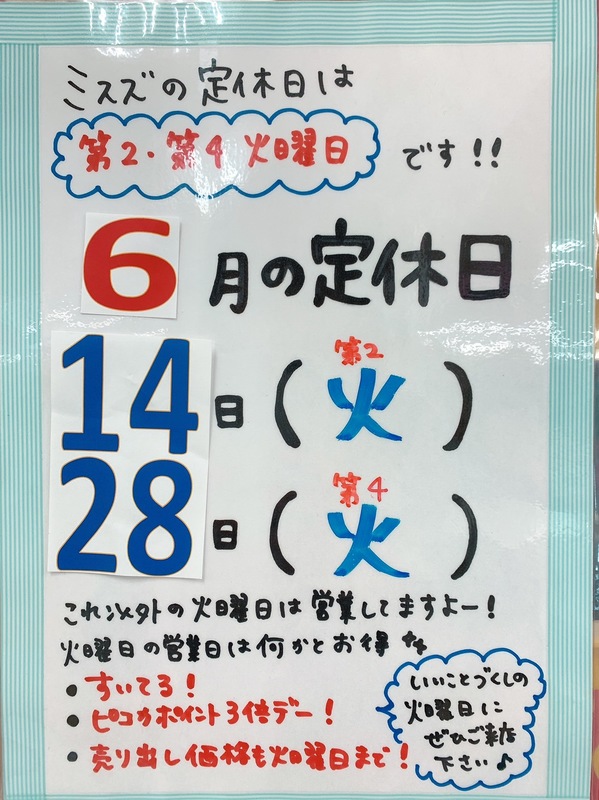 ミスズの定休日は
第2・第4 火曜日 です!!
6月の定休日
14日(第2火)
28日(第4火)
これ以外の火曜日は営業してますよー!
火曜日の営業日は何かとお得
• すいてる!
• ピコカポイント3倍デー!
• 売り出し価格も火曜日まで!
いいことづくしの
火曜日に
ぜひご来店
下さい♪